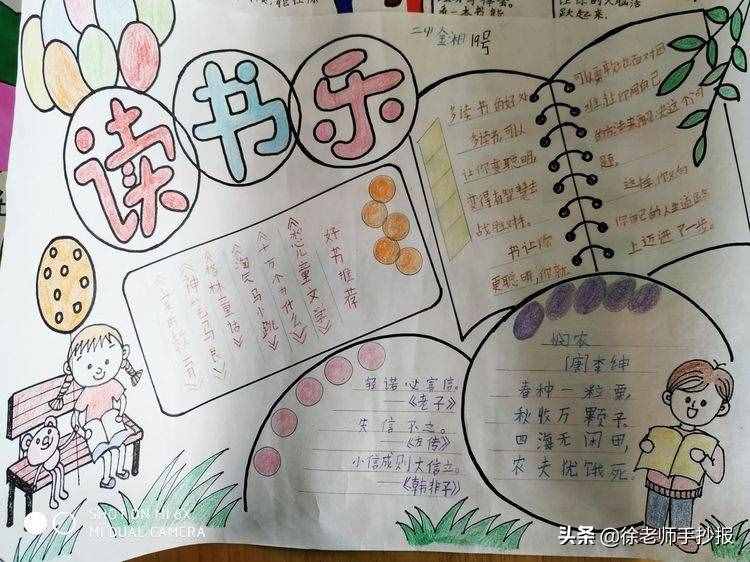 跃起来。
金相 19号
读书乐
多读书的好处
多读书,可以
让你变聪明,
变得有智慧去
战胜对手。
书让你
更聪明,你就
可以勇敢地面对困
难。让你用自己
的方法来解决这个问
题。
这样,你又向
你自己的人生道路
上迈进了一步。
好书推荐
儿童文学》
《十万个为什么》
《淘气马小跳》
《格林童话》
《神笔马良》
轻诺必寡信。
——《老子》
失信不立。
——《左传》
小信成则大信立。
——《韩非子》
悯农
[唐]李绅
春种一粒粟,
秋收万颗子。
四海无闲田,
农夫犹饿死。
MI DUAL CAMERA
头条@徐老师手抄报